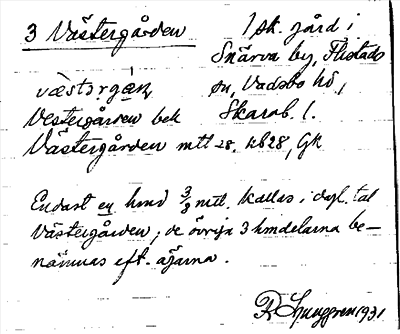 3 Västergården
1 sk. gård i
Snärva by, Flistads
sn, Vadsbo hd,
Skarab. l.
væstərgán
Vestergården bek
Västergården mtl 28, RB28, GK
Endast en hmd 3/8 mtl. kallas i dagl. tal
Västergården; de övriga 3 hmdelarna be-
nämnas eft. ägarna.
R. Ljunggren 1931